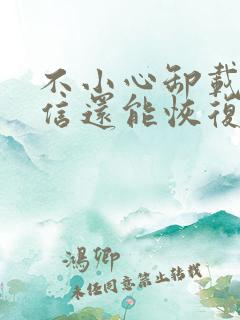 不小心卸載
信還能恢復
鴻卿
未任同意禁止轉載